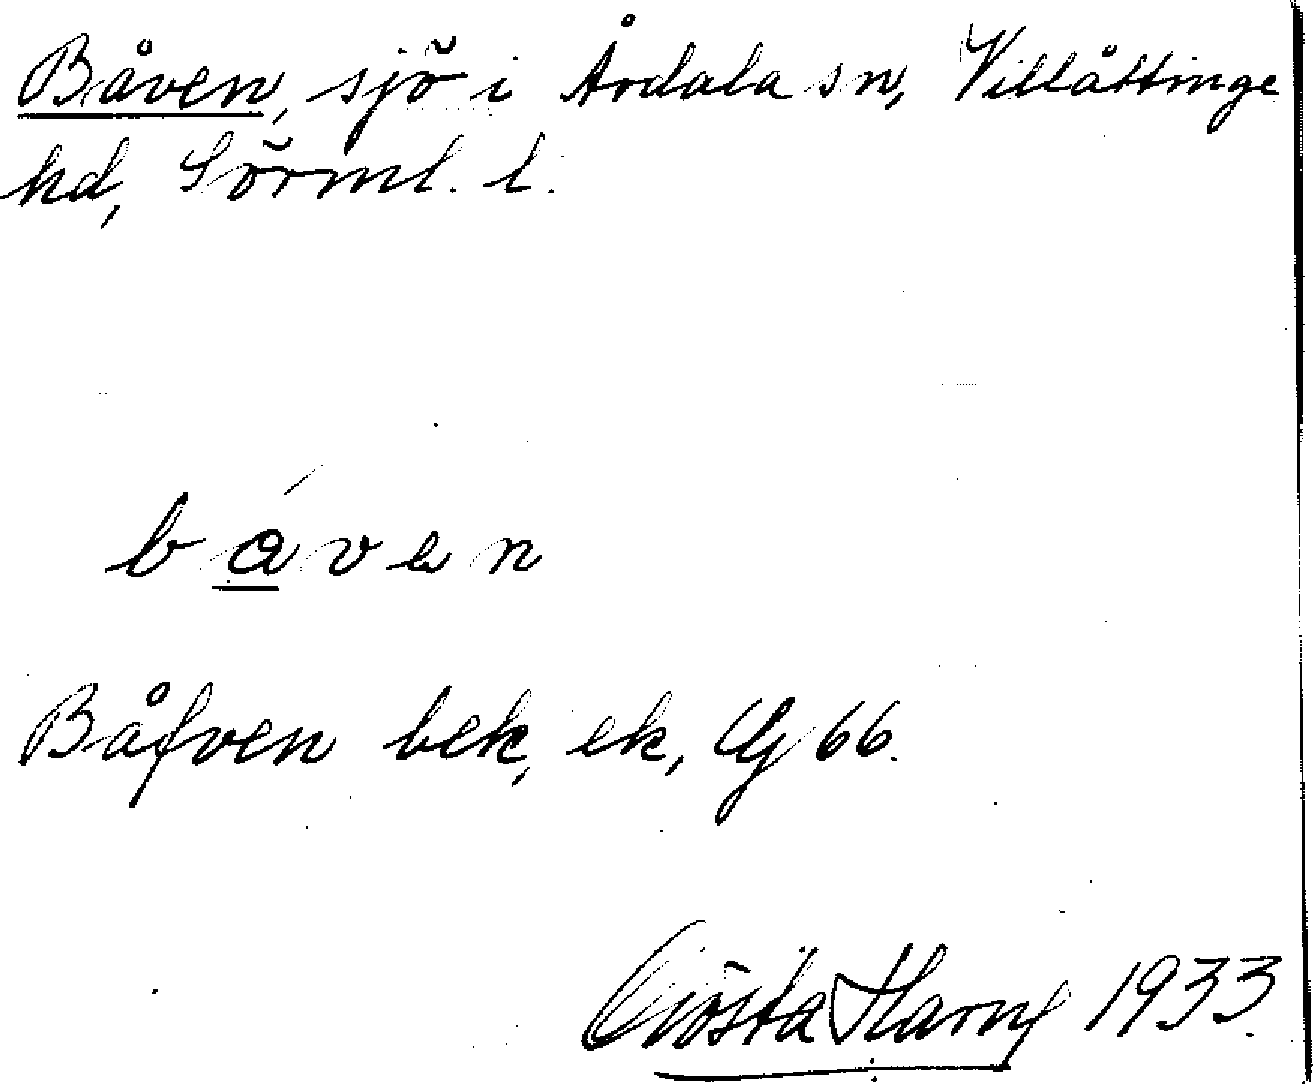 Båven, sjö i Årdala sn, Villåttinge
hd, Sörml. l.
båven
Båfven bek, ek, G 66.
Gösta 1933.